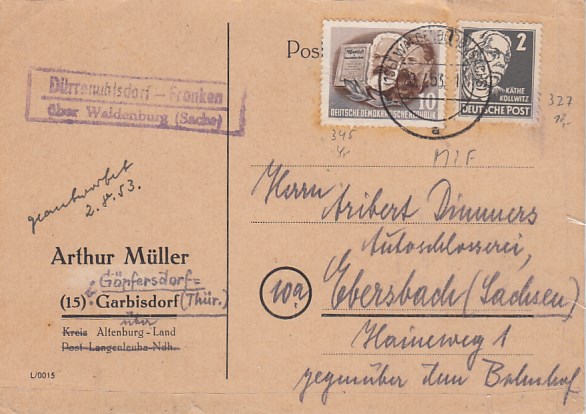 Post
10
DEUTSCHE DEMOKRATISCHE REPUBLIK
2
KÄTHE
KOLLWITZ
DEUTSCHE POST
a
Dürrenuhlsdorf - Franken
über Waldenburg (Sachs)
345
327
MIF
geantwortet
2.8.53.
Herrn
Aribert Dimmers
Autoschlosserei,
10a Ebersbach (Sachsen)
Haineweg 1
gegenüber dem Bahnhof
Arthur Müller
Göpfersdorf=
(15) Garbisdorf (Thür.)
über
Kreis Altenburg-Land
Post Langenleuba-Ndh.
L/0015